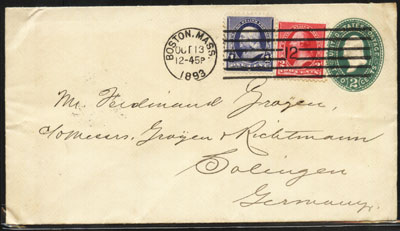 BOSTON, MASS.
OCT 13
12-45P
1893
12
UNITED STATES POSTAGE
2
Mr. Ferdinand Grayen,
c/o Messrs. Grayen & Richtmann
Solingen
Germany.